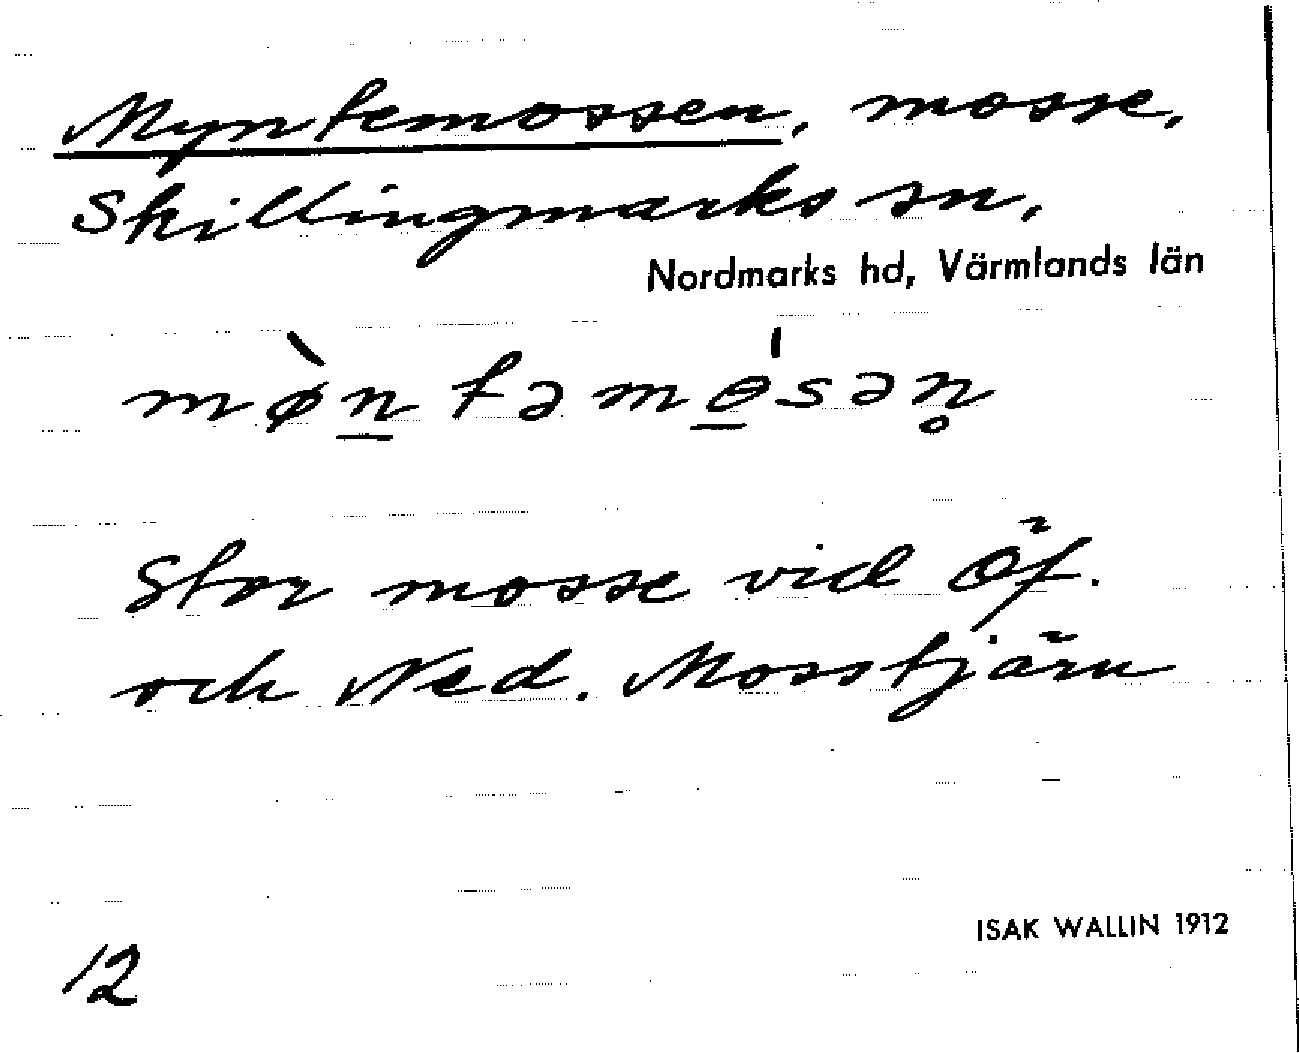 Myntemossen, mosse,
Skillingmarks sn,
Nordmarks hd, Värmlands län
mø̀n̲təmɵ̲́sən̥
Stor mosse vid Öf.
och Ned. Mosstjärn
ISAK WALLIN 1912
12